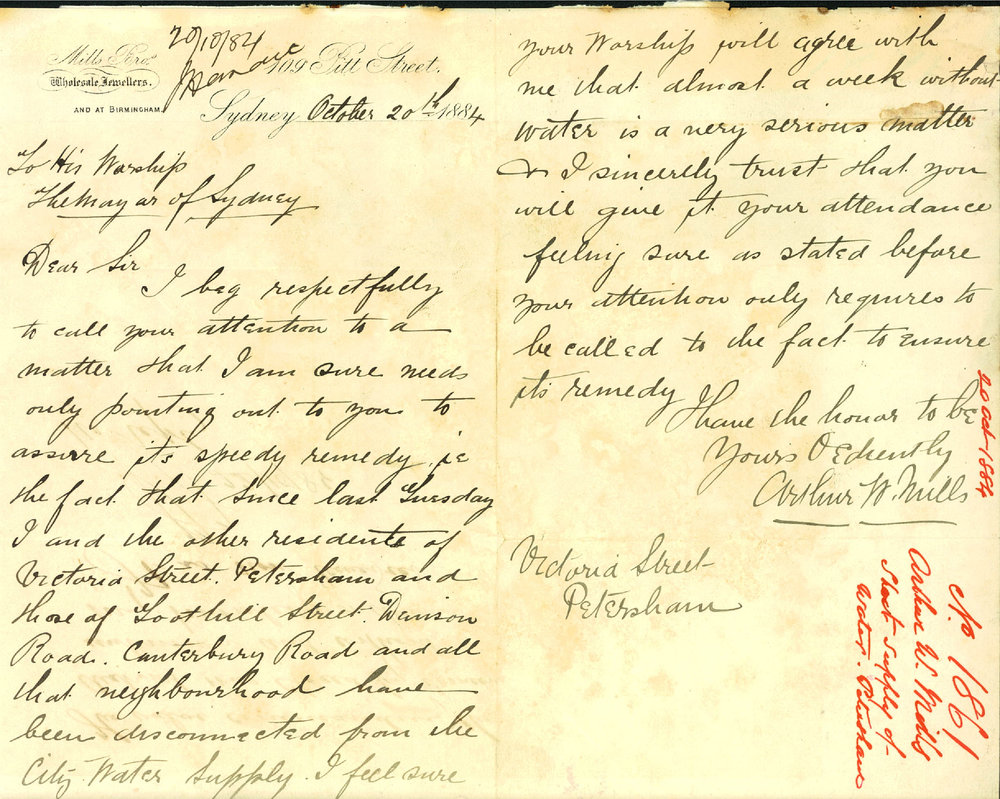 20/10/84
Mills Bros
Wholesale Jewellers.
AND AT BIRMINGHAM
109 Pitt Street.
Sydney October 20th 1884
To His Worship
The Mayor of Sydney
Dear Sir
I beg respectfully
to call your attention to a
matter that I am sure needs
only pointing out to you to
assure its speedy remedy, ie
the fact that since last Tuesday
I and the other residents of
Victoria Street. Petersham and
those of Toothill Street. Denison
Road. Canterbury Road and all
that neighbourhood have
been disconnected from the
City Water Supply. I feel sure
your Worship will agree with
me that almost a week without
water is a very serious matter
& I sincerely trust that you
will give it your attendance
feeling sure as stated before
your attention only requires to
be called to the fact to ensure
its remedy
I have the honor to be
Yours Obediently
Arthur W. Mills
Victoria Street
Petersham
20 Oct 1884
No 1861
Arthur W. Mills
Short Supply of
Water. Petersham